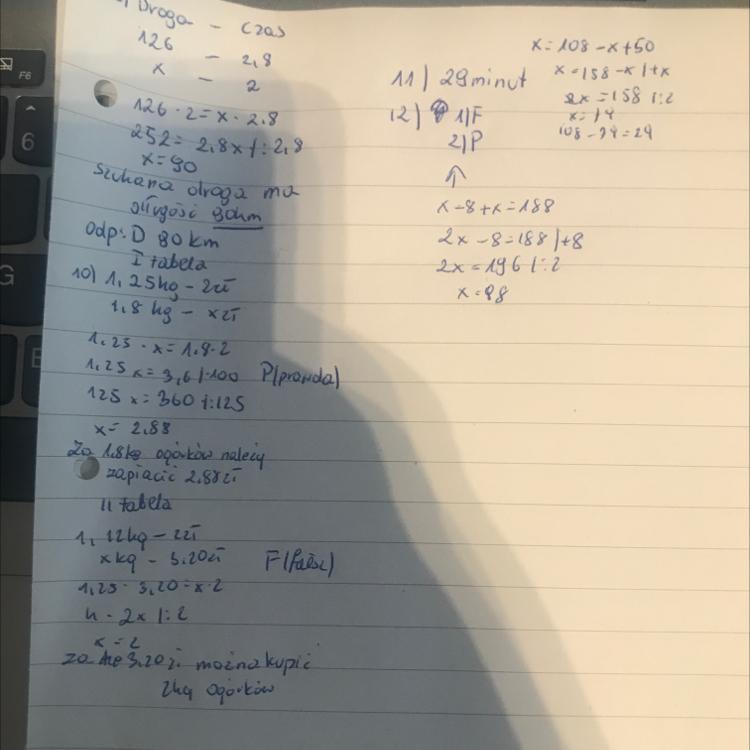 Droga - czas
126 - 2,8
x - 2
126 · 2 = x · 2,8
252 = 2,8x /: 2,8
x = 90
Szukana droga ma
długość 90km
Odp: D 90 km
I tabela
10) 1,25kg - 2zł
1,8 kg - x zł
1,25 · x = 1,8 · 2
1,25 x = 3,6 /·100 P(prawda)
125 x = 360 /:125
x = 2,88
Za 1,8kg ogórków należy
zapłacić 2,88zł
II tabela
1,12kg - 2zł
x kg - 3,20zł F(fałsz)
1,25 · 3,20 = x · 2
4 = 2x /: 2
x = 2
za 3,20 zł można kupić
2kg ogórków
x = 108 - x + 50
11) 29 minut
x = 158 - x /+x
2x = 158 /:2
x = 79
108 - 79 = 29
12) 1) F
2) P
x - 8 + x = 188
2x - 8 = 188 /+8
2x = 196 /: 2
x = 98
F6
6
G